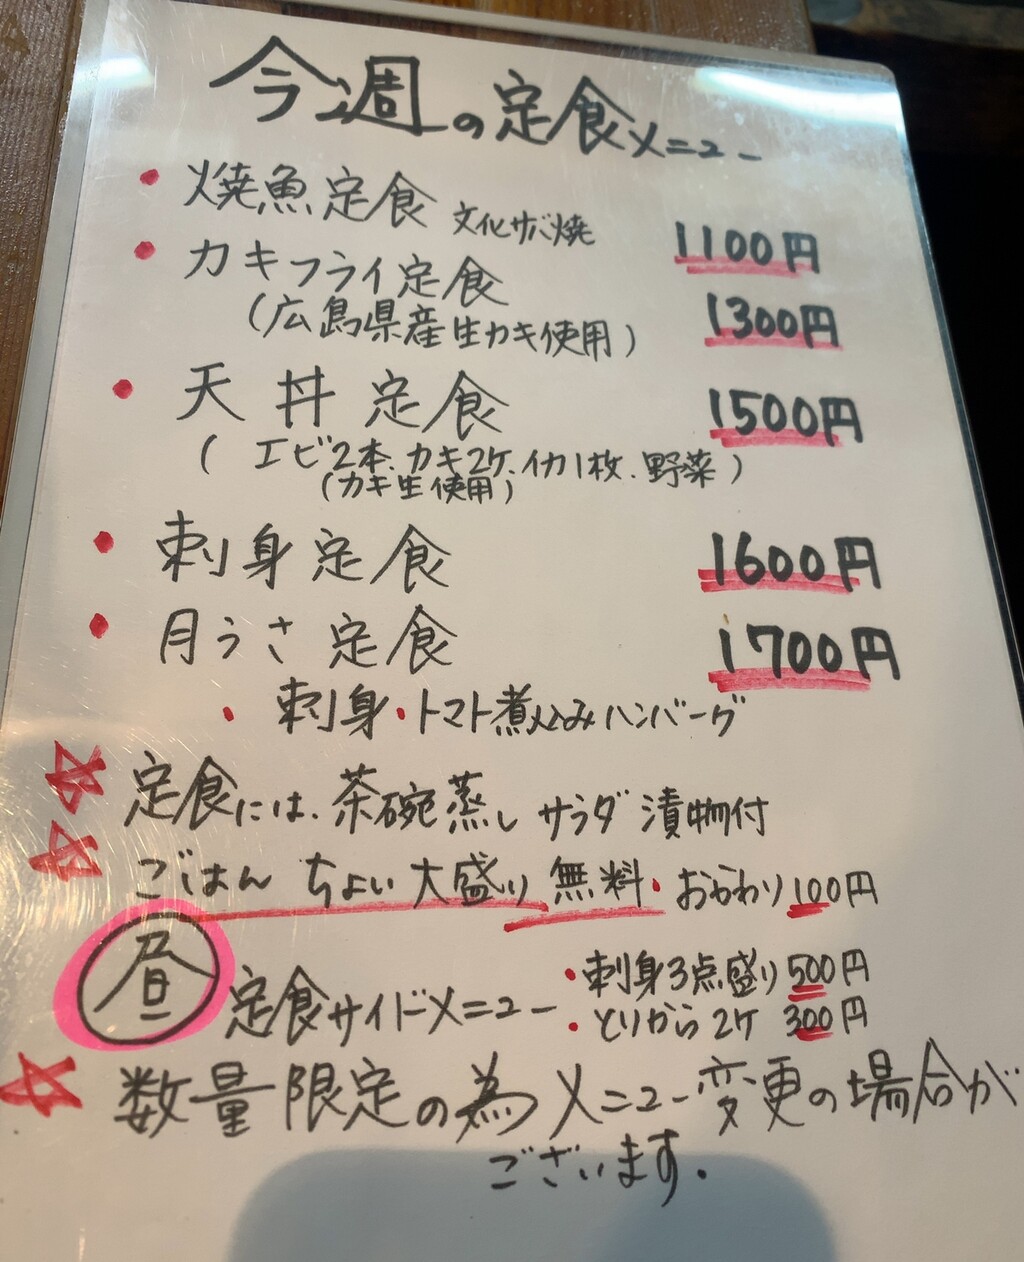 今週の定食メニュー
・焼魚定食 文化サバ焼 1100円
・カキフライ定食
(広島県産生カキ使用) 1300円
・天丼定食 1500円
(エビ2本、カキ2ケ、イカ1枚、野菜)
(カキ生使用)
・刺身定食 1600円
・月うさ定食 1700円
・刺身・トマト煮込みハンバーグ
☆定食には、茶碗蒸し サラダ 漬物付
☆ごはん ちょい大盛り無料・おかわり100円
昼 定食サイドメニュー ・刺身3点盛り500円
・とりから2ケ 300円
☆数量限定の為メニュー変更の場合が
ございます.